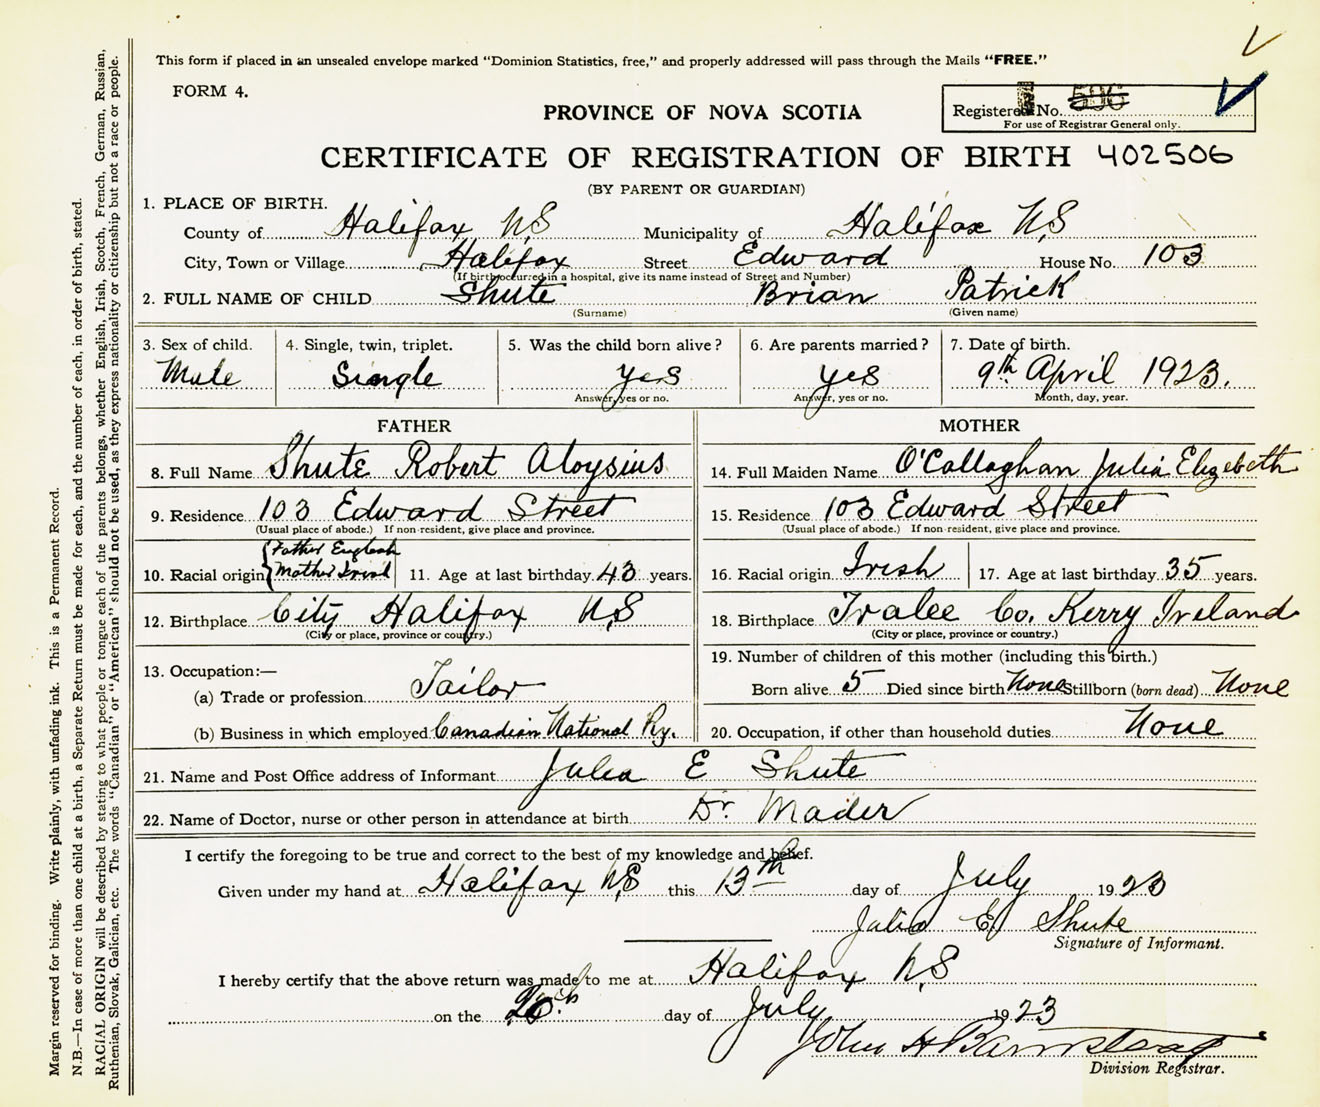 This form if placed in an unsealed envelope marked "Dominion Statistics, free," and properly addressed will pass through the Mails "FREE."
FORM 4.
PROVINCE OF NOVA SCOTIA
Registered No. 506
For use of Registrar General only.
CERTIFICATE OF REGISTRATION OF BIRTH 402506
(BY PARENT OR GUARDIAN)
1. PLACE OF BIRTH.
County of Halifax N.S Municipality of Halifax N.S
City, Town or Village Halifax Street Edward House No. 103
(If birth occurred in a hospital, give its name instead of Street and Number)
2. FULL NAME OF CHILD Shute Brian Patrick
(Surname) (Given name)
3. Sex of child. 4. Single, twin, triplet. 5. Was the child born alive? 6. Are parents married? 7. Date of birth.
Male Single Yes Yes 9th April 1923.
Answer, yes or no. Answer, yes or no. Month, day, year.
FATHER
8. Full Name Shute Robert Aloysius
9. Residence 103 Edward Street
(Usual place of abode.) If non-resident, give place and province.
Father English
10. Racial origin Mother Irish 11. Age at last birthday 43 years.
12. Birthplace City Halifax N.S
(City or place, province or country.)
13. Occupation:—
(a) Trade or profession Tailor
(b) Business in which employed Canadian National Ry.
MOTHER
14. Full Maiden Name O'Callaghan Julia Elizebeth
15. Residence 103 Edward Street
(Usual place of abode.) If non-resident, give place and province.
16. Racial origin Irish 17. Age at last birthday 35 years.
18. Birthplace Tralee Co. Kerry Ireland
(City or place, province or country.)
19. Number of children of this mother (including this birth.)
Born alive 5 Died since birth None Stillborn (born dead) None
20. Occupation, if other than household duties None
21. Name and Post Office address of Informant Julia E Shute
22. Name of Doctor, nurse or other person in attendance at birth Dr. Mader
I certify the foregoing to be true and correct to the best of my knowledge and belief.
Given under my hand at Halifax N.S this 13th day of July 1923
Julia E Shute
Signature of Informant.
I hereby certify that the above return was made to me at Halifax N.S
on the day of July 1923
John H Barnstead
Division Registrar.
Margin reserved for binding. Write plainly, with unfading ink. This is a Permanent Record.
N.B.—In case of more than one child at a birth, a Separate Return must be made for each, and the number of each, in order of birth, stated.
RACIAL ORIGIN will be described by stating to what people or tongue each of the parents belongs, whether English, Irish, Scotch, French, German, Russian,
Ruthenian, Slovak, Galician, etc. The words "Canadian" or "American" should not be used, as they express nationality or citizenship but not a race or people.